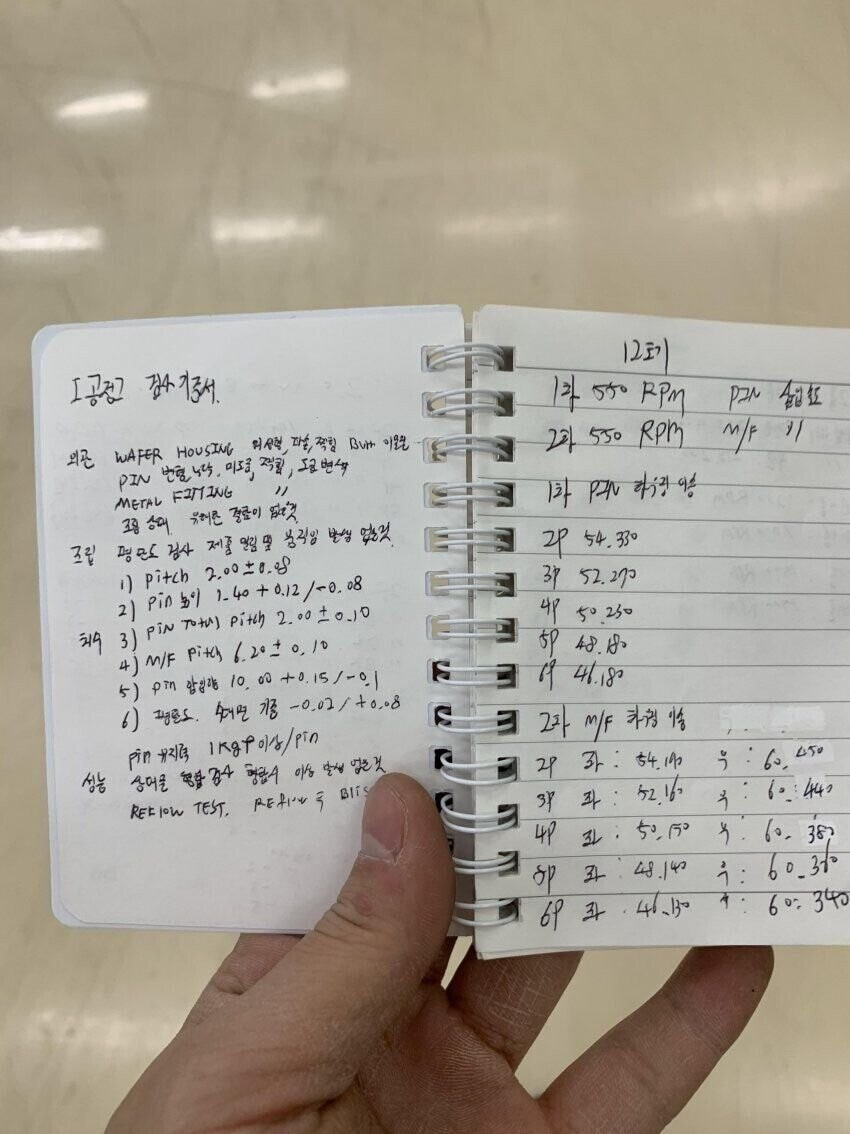 [공정] 검사기준서.
외관 WAFER HOUSING 미성형, 파손, 찍힘, Burr 이물
PIN 변형, 누락, 미도금, 찍힘, 도금변색
METAL FITTING 〃
조립 상태 유해한 결함이 없을것.
조립 평탄도 검사 제품 밀림 및 움직임 발생 없을것.
1) Pitch 2.00 ± 0.08
2) Pin 높이 1.40 + 0.12 / -0.08
치수 3) PIN Total Pitch 2.00 ± 0.10
4) M/F Pitch 6.20 ± 0.10
5) Pin 압입량 10.00 + 0.15 / -0.1
6) 평탄도. 상대면 기준 -0.02 / +0.08
Pin 유지력 1kgf 이상/pin
성능 상대물 결합 검사 결합시 이상 발생 없을것
REFlow TEST. REflow 후 Blis
12호기
1차 550 RPM PIN 삽입속도
2차 550 RPM M/F 〃
1차 PIN 좌우측 이송
2P 54.330
3P 52.270
4P 50.230
5P 48.180
6P 46.180
2차 M/F 좌우측 이송
2P 좌 : 54.190 우 : 60.450
3P 좌 : 52.160 우 : 60.440
4P 좌 : 50.150 우 : 60.380
5P 좌 : 48.140 우 : 60.360
6P 좌 : 46.130 우 : 60.340